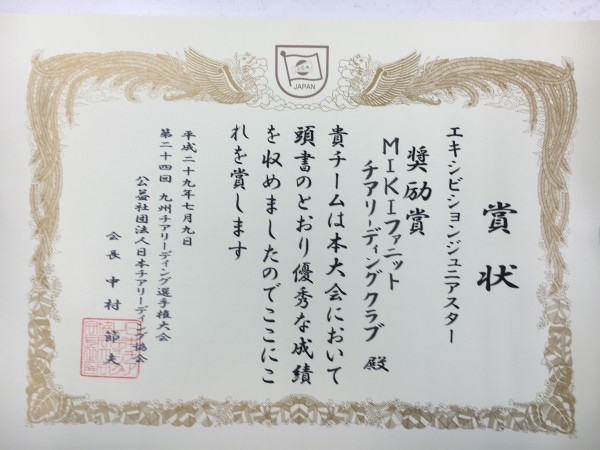 JAPAN
賞状
エキシビションジュニアスター
奨励賞
MIKIファニット
チアリーディングクラブ 殿
貴チームは本大会において
頭書のとおり優秀な成績
を収めましたのでここにこ
れを賞します
平成二十九年七月九日
第二十四回 九州チアリーディング選手権大会
公益社団法人日本チアリーディング協会
会長 中村 節夫